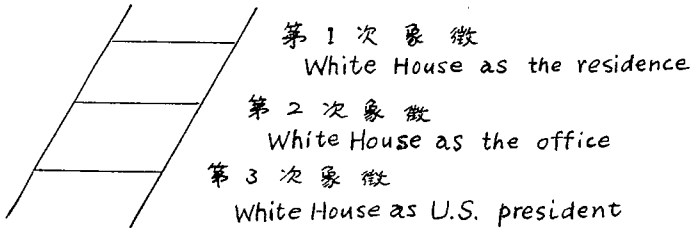 第1次象徴
White House as the residence
第2次象徴
White House as the office
第3次象徴
White House as U.S. president